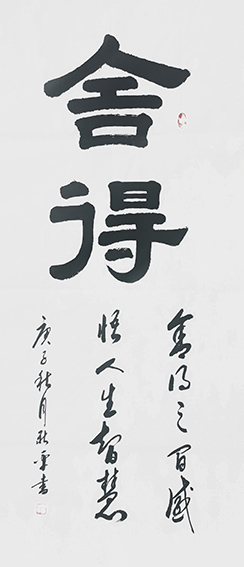 舍得
舍得之间感
悟人生智慧
庚子秋月书